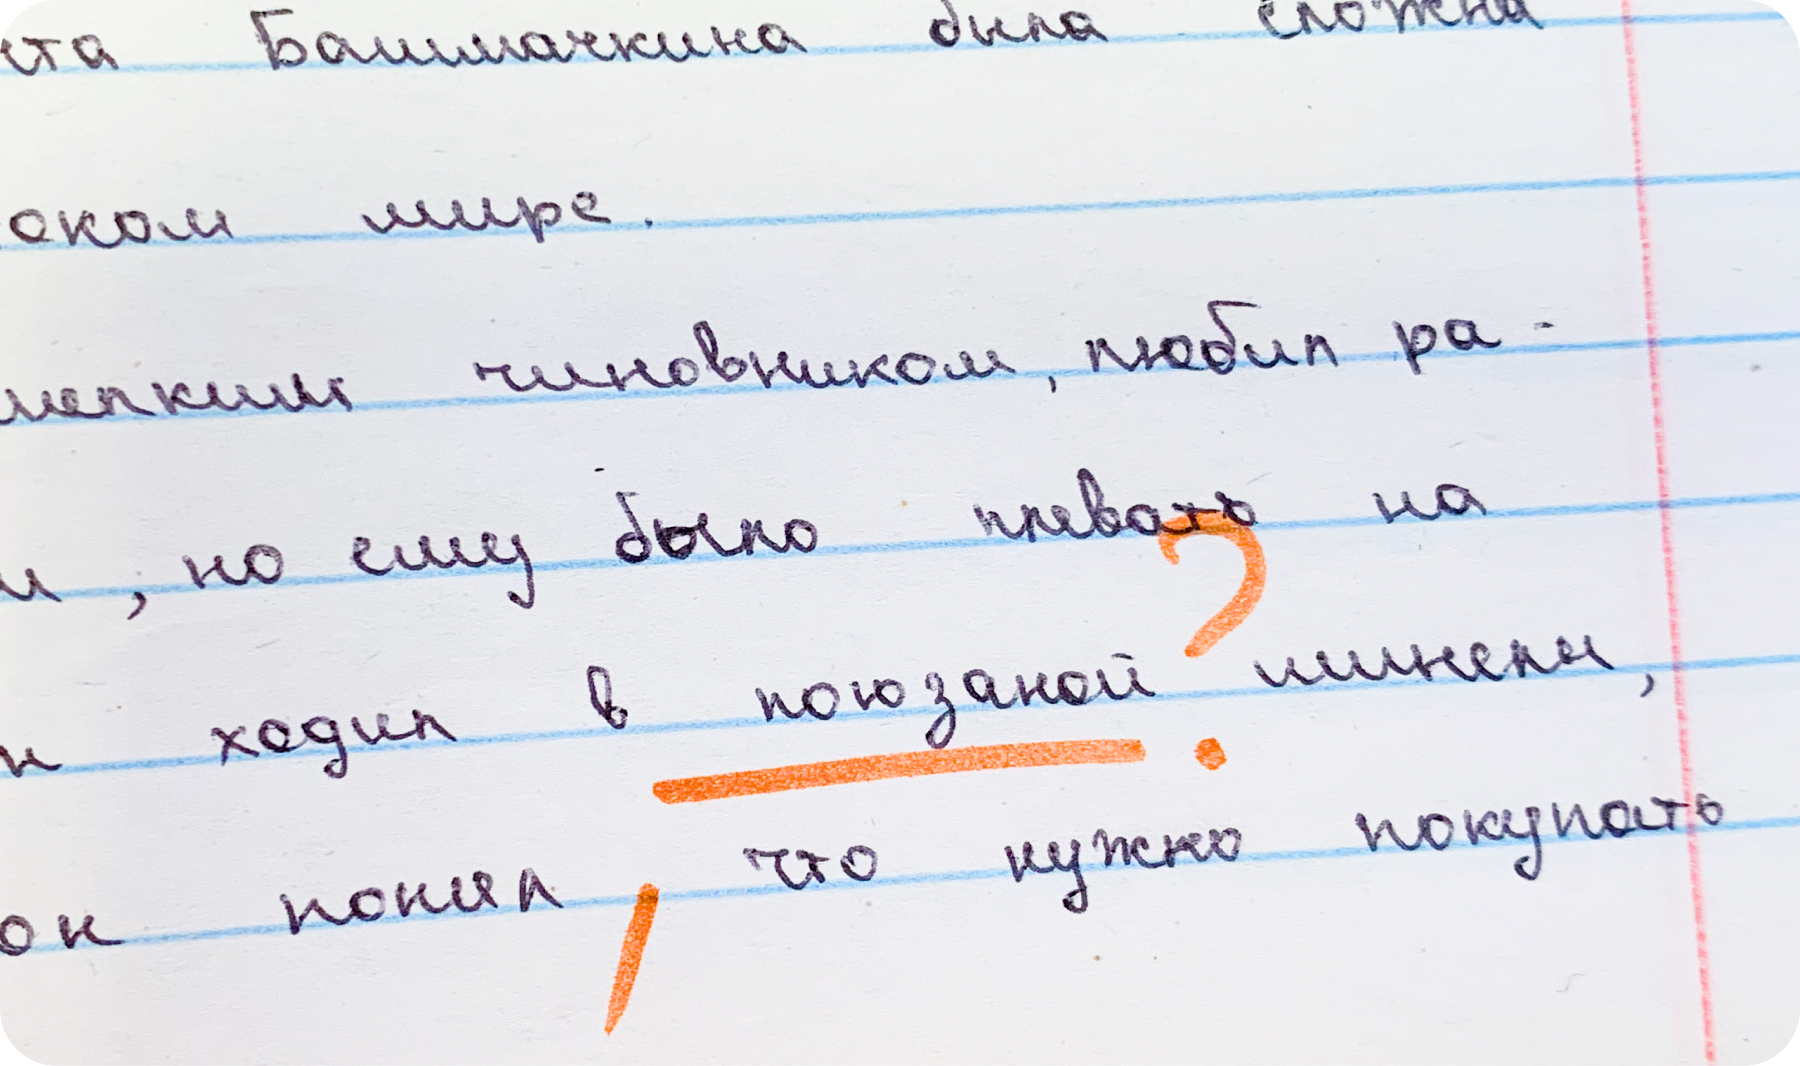 ита Башмачкина была сложна
соком мире.
мелким чиновником, любил ра-
м, но ему было плевать на
н ходил в поюзаной шинели,
он понял, что нужно покупать